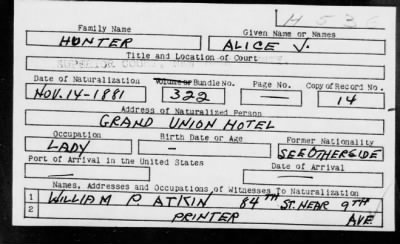 H 536
Family Name Given Name or Names
HUNTER ALICE V.
Title and Location of Court
SUPERIOR COURT
Date of Naturalization Volume or Bundle No. Page No. Copy of Record No.
NOV. 14-1881 322 — 14
Address of Naturalized Person
GRAND UNION HOTEL
Occupation Birth Date or Age Former Nationality
LADY — SEE OTHERSIDE
Port of Arrival in the United States Date of Arrival
Names, Addresses and Occupations of Witnesses To Naturalization
1 WILLIAM P ATKIN 84TH ST. NEAR 9TH
2 PRINTER AVE